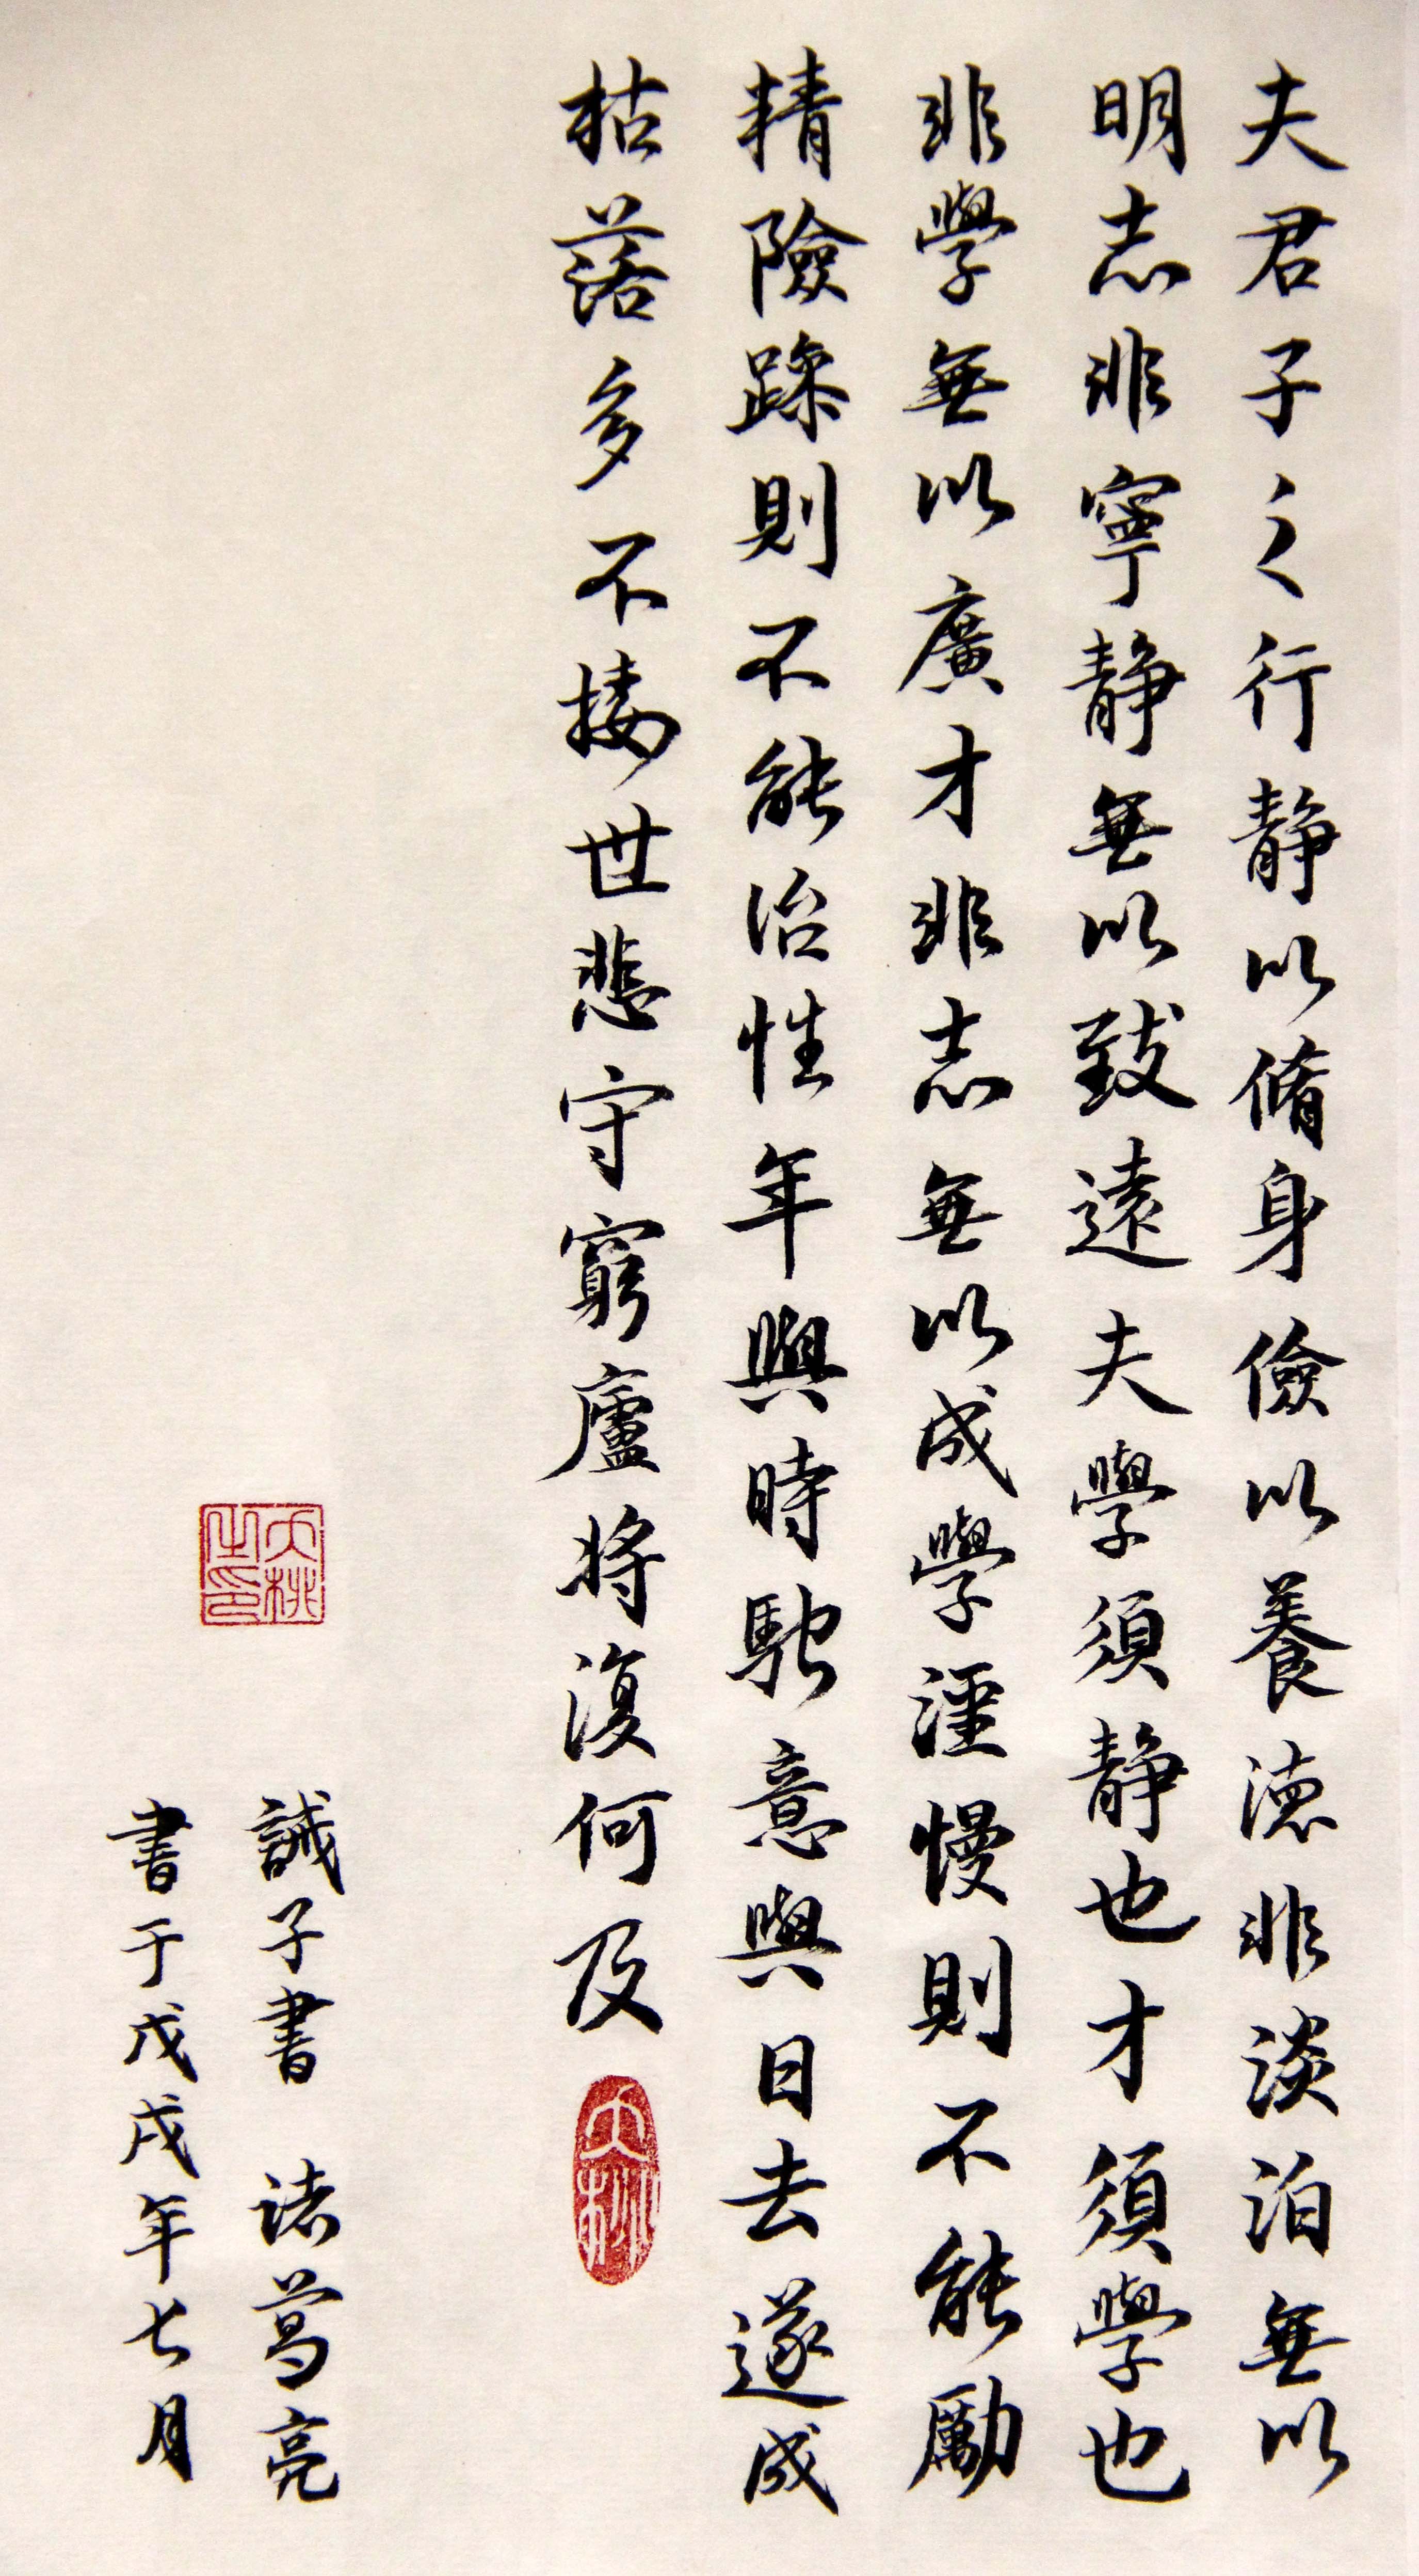 夫君子之行静以脩身儉以養德非淡泊無以
明志非寧静無以致遠夫學須静也才須學也
非學無以廣才非志無以成學淫慢則不能勵
精險躁則不能治性年與時馳意與日去遂成
枯落多不接世悲守窮廬將復何及
誡子書 诸葛亮
書于戊戌年七月